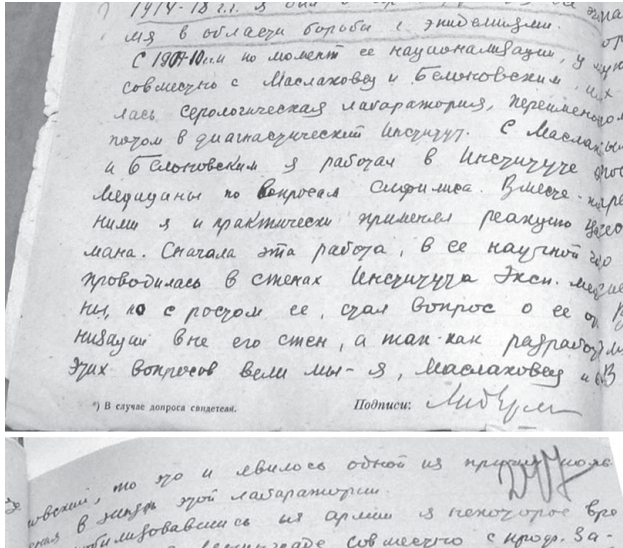 1914-18 г.г. я
мя в области борьбы с эпидемиями.
С 1907-10 г.г. по момент ее национализации, у
совместно с Маслаковец и Белоновским
лась серологическая лаборатория, переимено
потом в диагностический Институт. С Маслак
и Белоновским я работал в Институте
Медицины по вопросам сифилиса. Вместе с
ними я и практически применял реакцию
мана. Сначала эта работа, в ее научной
проводилась в стенах Института Эксп. меди
ны, но с ростом ее, стал вопрос о ее ор
низации вне его стен, а так как разработ
этих вопросов вели мы - я, Маслаковец и
*) В случае допроса свидетеля. Подписи:
247
новский, то это и явилось одной из причин
в жизнь этой лаборатории.
билизовавшись из армии я некоторое вре
совместно с проф. За-